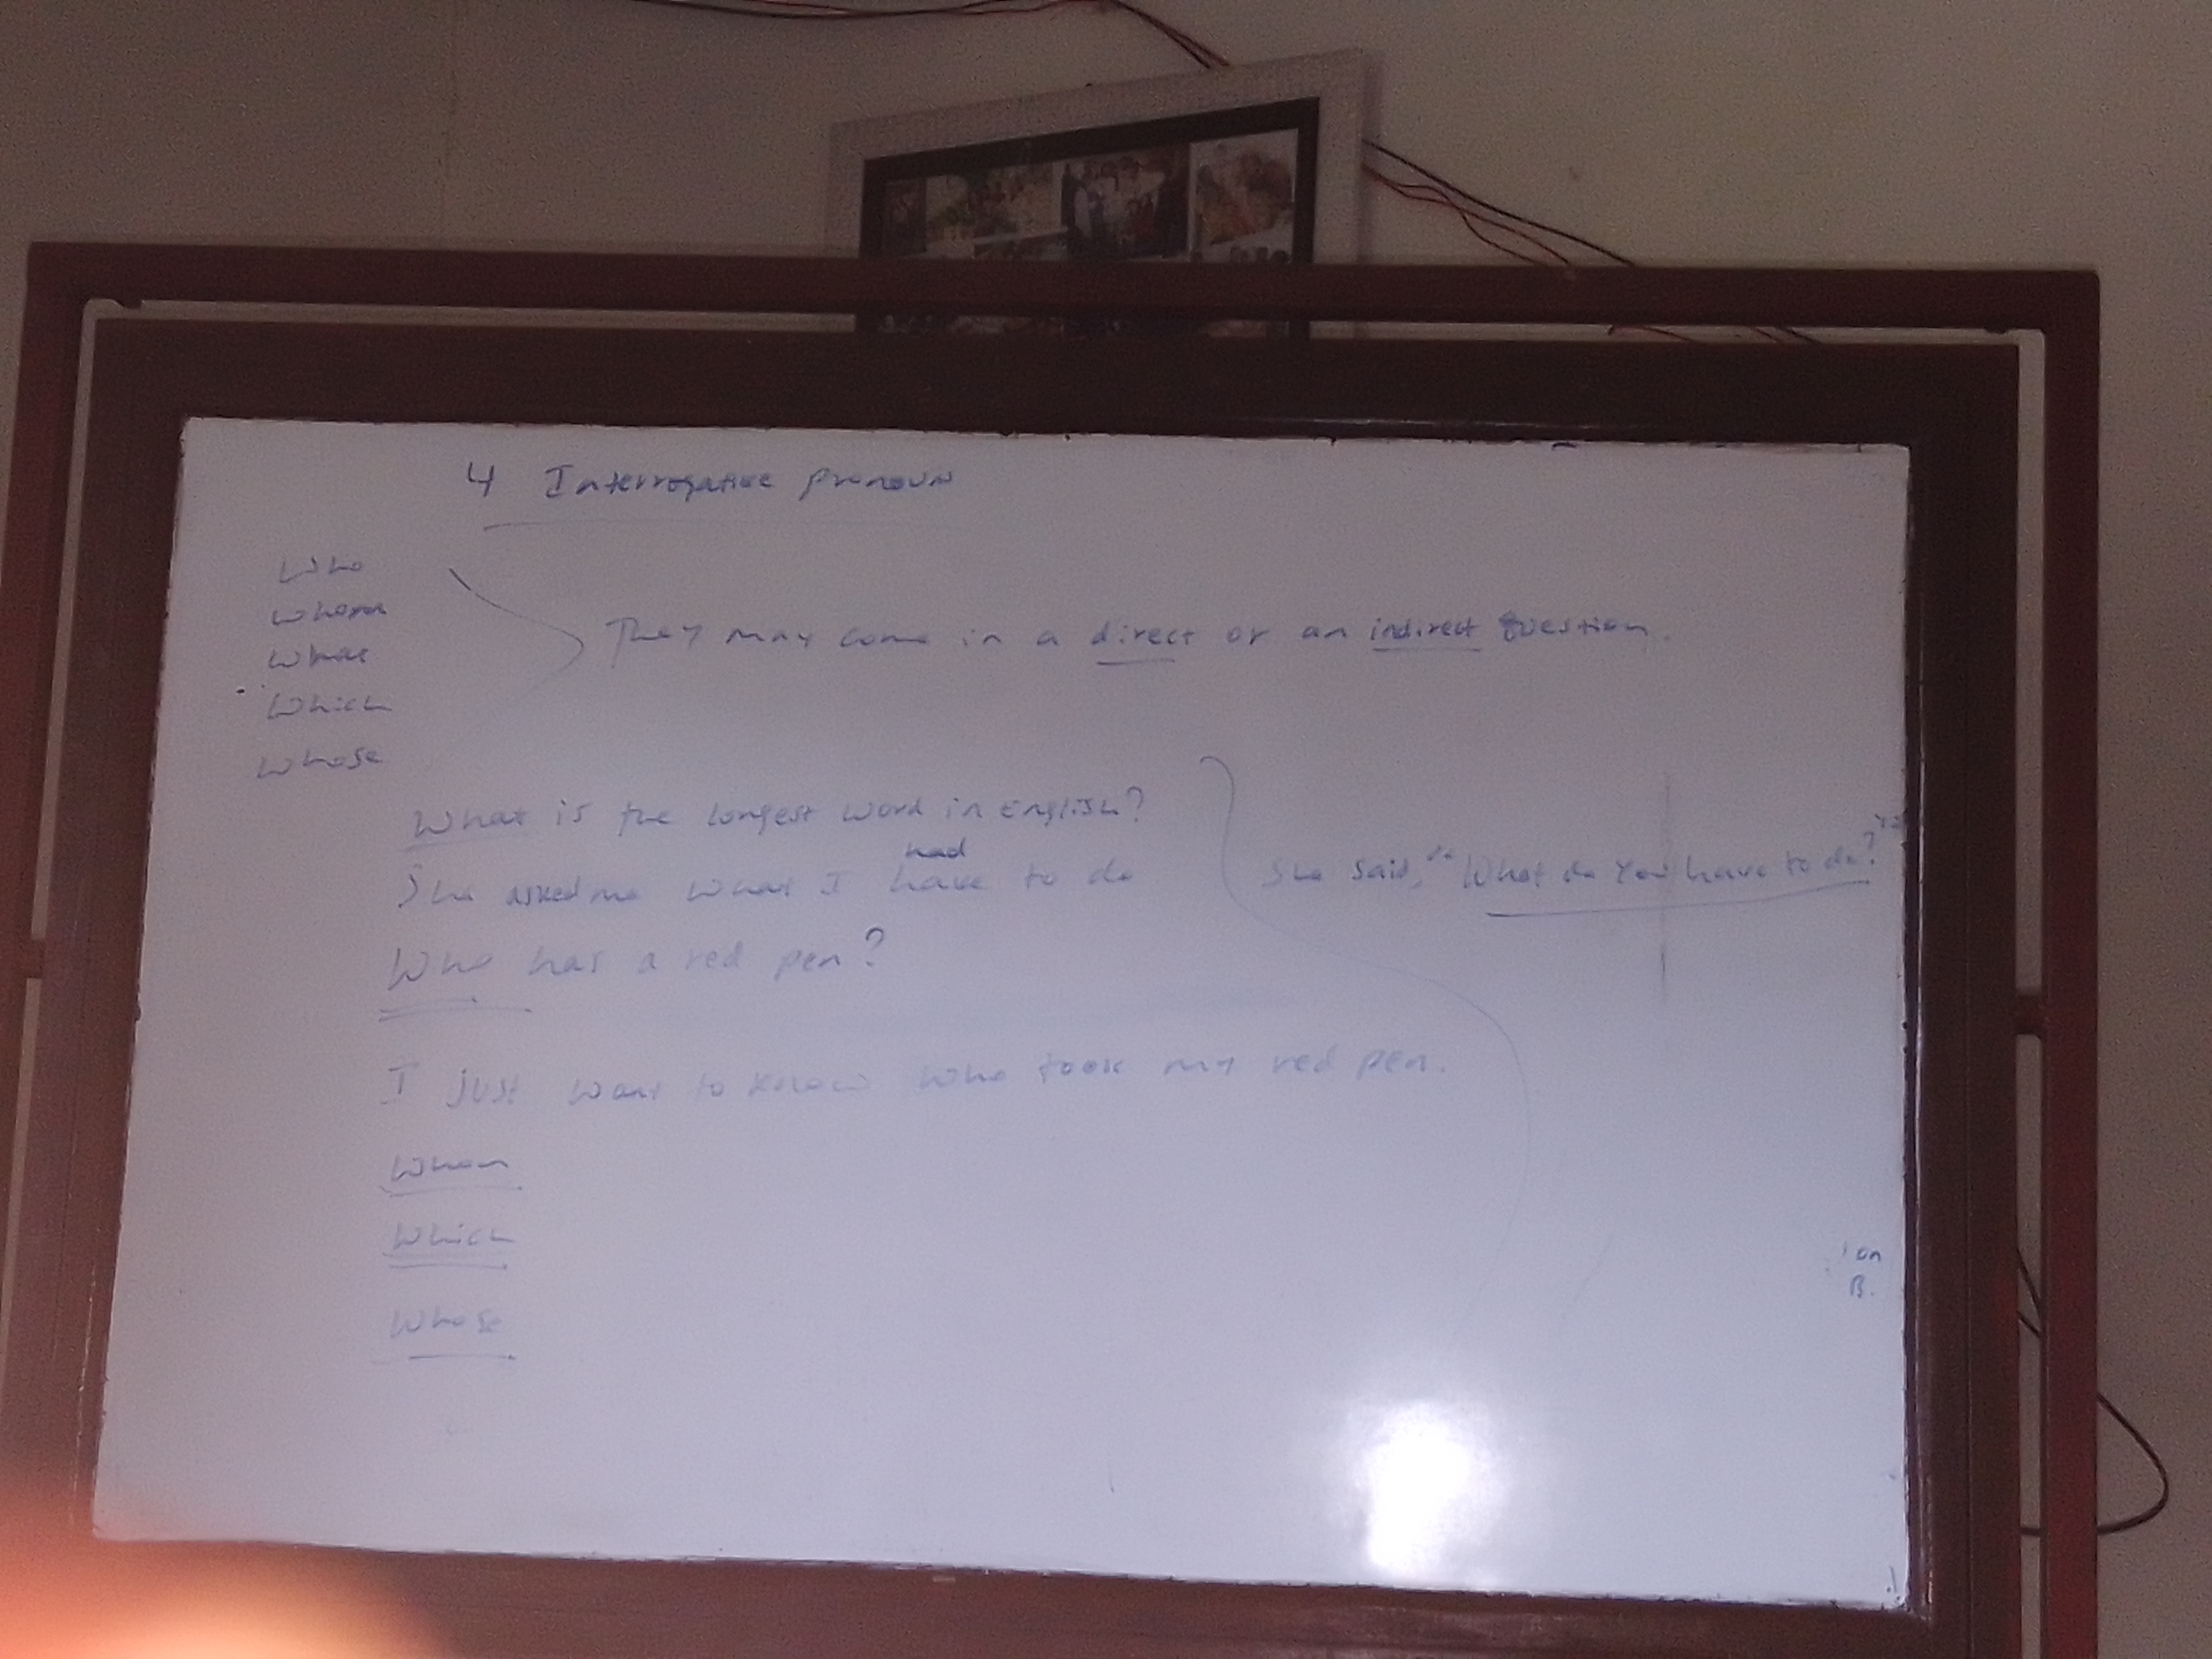 4 Interrogative pronoun
Who
Whom
What
Which
Whose
They may come in a direct or an indirect question.
What is the longest word in English?
had
She asked me what I have to do
She said, "What do you have to do?"
Who has a red pen?
I just want to know who took my red pen.
Whom
Which
Whose
on
B.